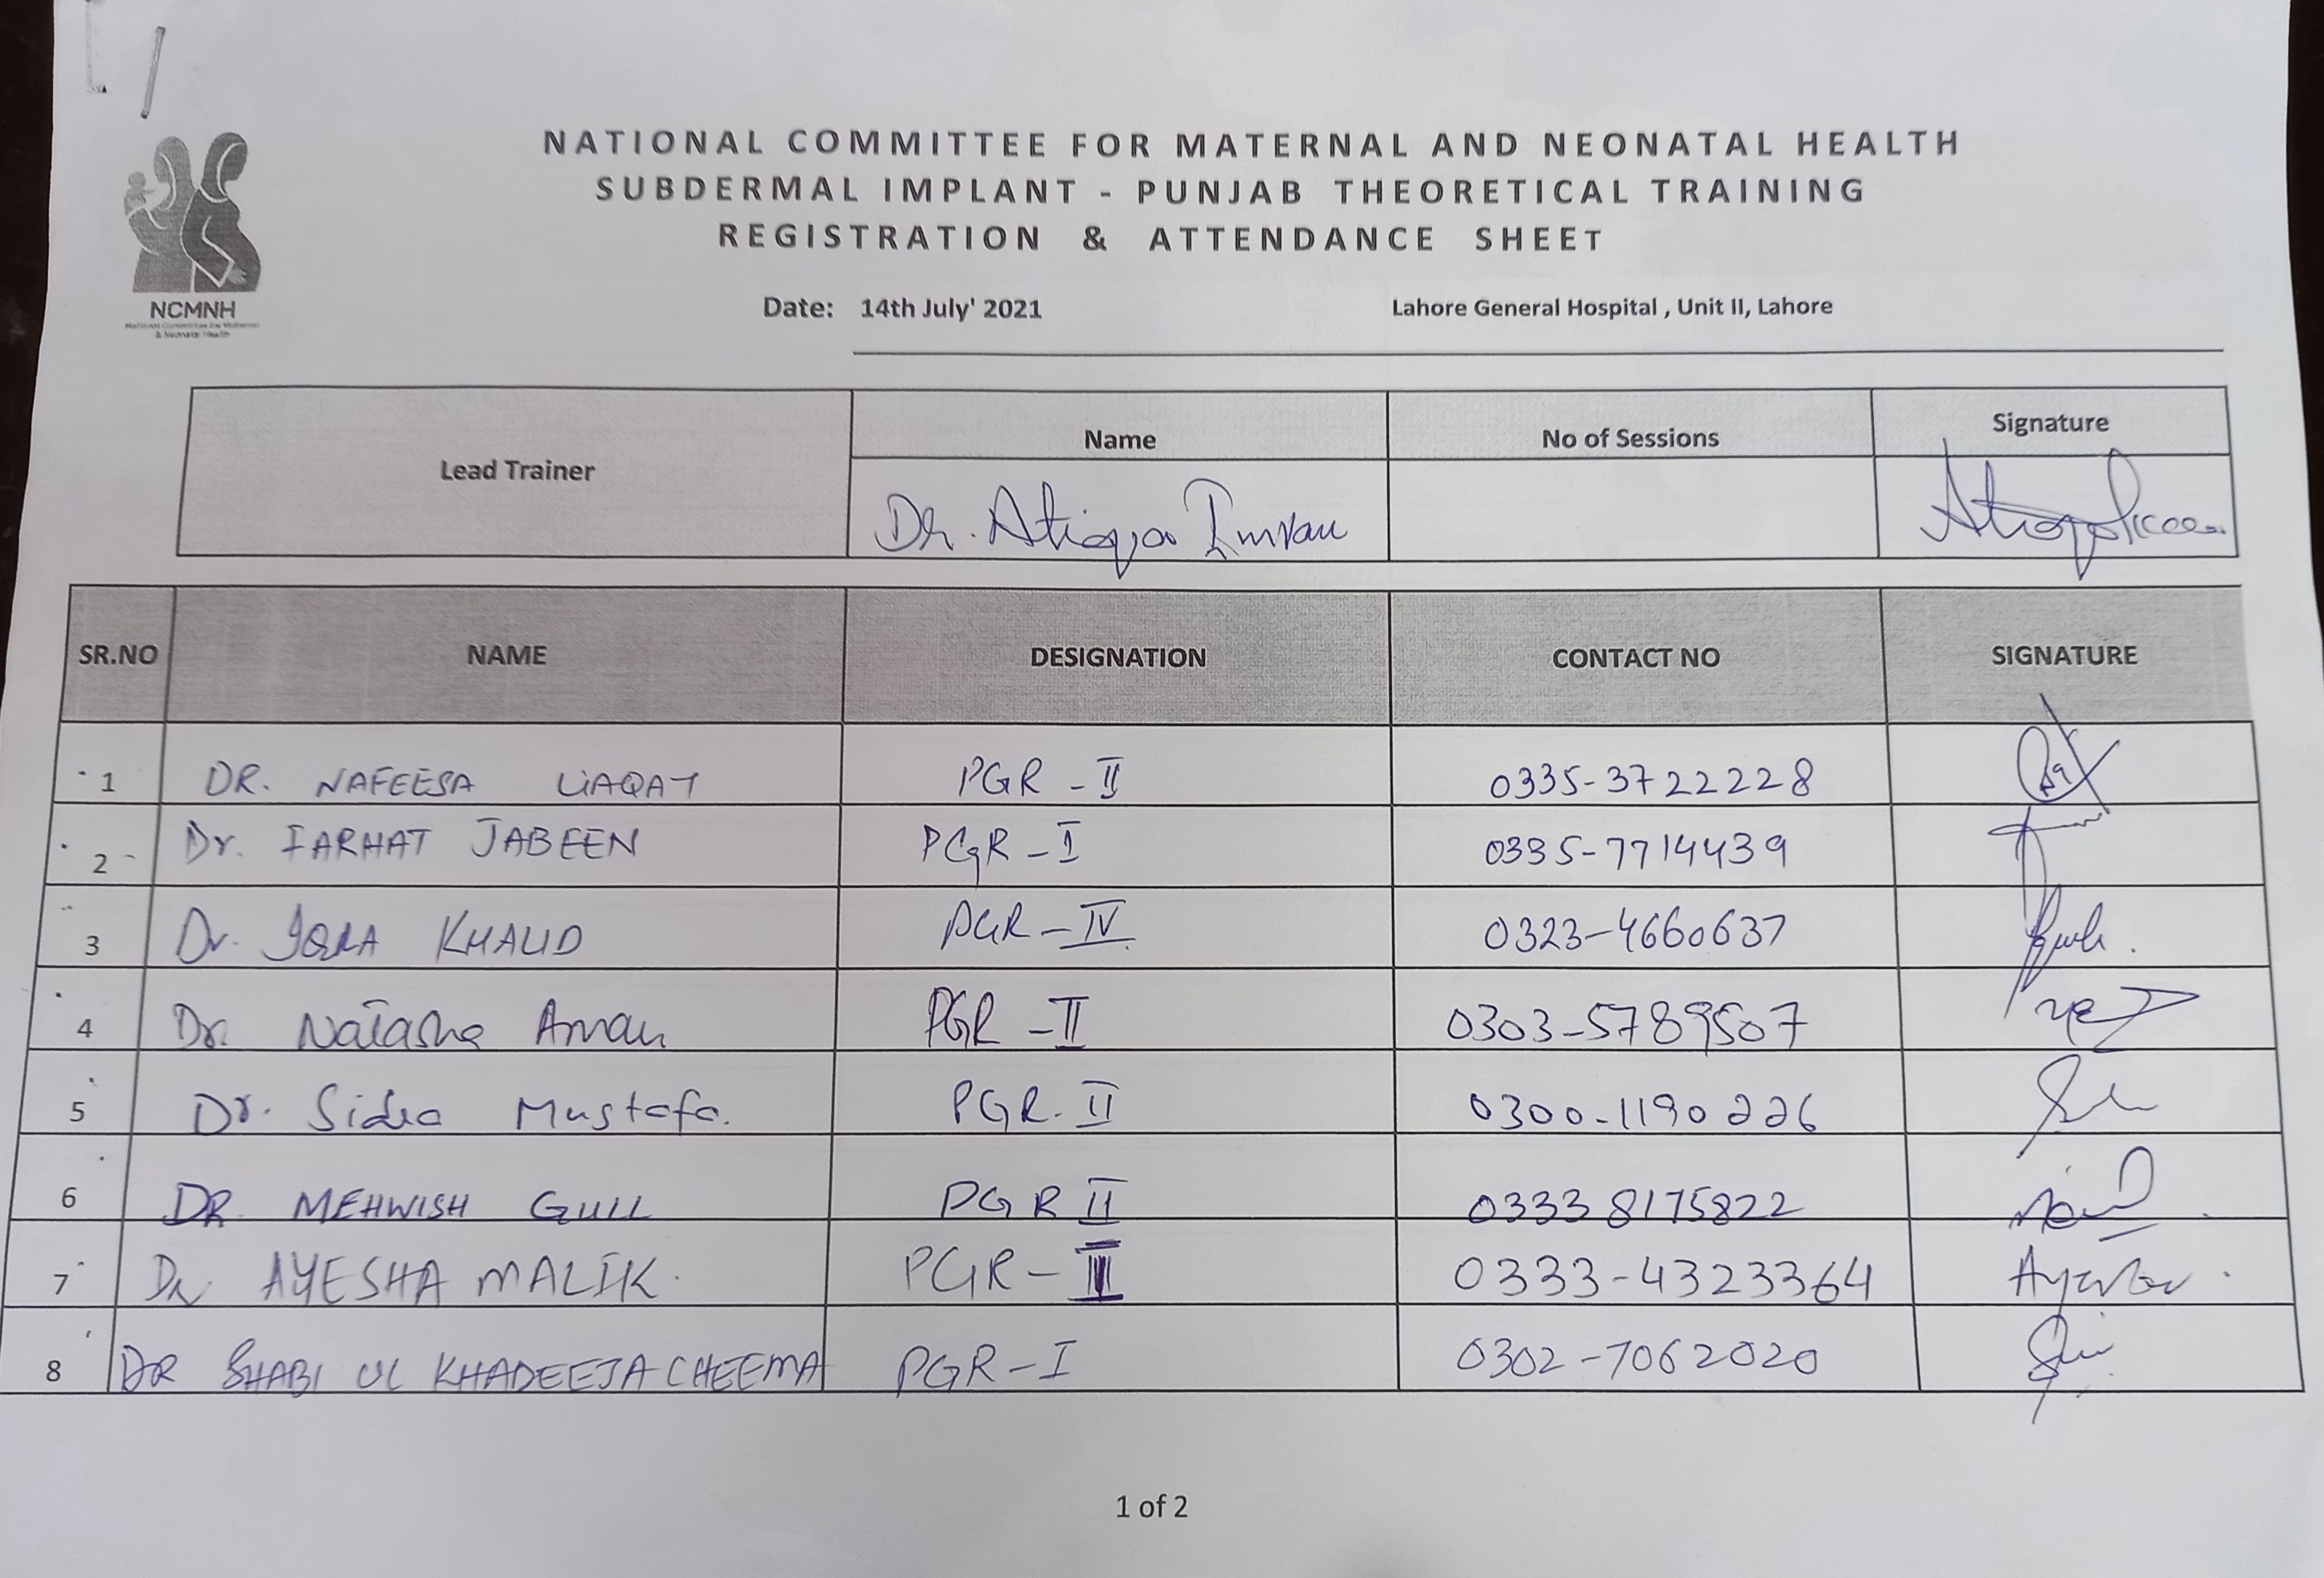 NATIONAL COMMITTEE FOR MATERNAL AND NEONATAL HEALTH
SUBDERMAL IMPLANT - PUNJAB THEORETICAL TRAINING
REGISTRATION & ATTENDANCE SHEET
NCMNH
National Committee for Maternal
& Neonatal Health
Date: 14th July' 2021 Lahore General Hospital , Unit II, Lahore
Lead Trainer Name No of Sessions Signature
Dr. Atiqa Imran
SR.NO NAME DESIGNATION CONTACT NO SIGNATURE
1 DR. NAFEESA LIAQAT PGR - II 0335-3722228
2 Dr. FARHAT JABEEN PGR - I 0335-7714439
3 Dr. IQRA KHALID PGR - IV 0323-4660637
4 Dr. Natasha Aman PGR - II 0303-5789507
5 Dr. Sidra Mustafa. PGR. II 0300-1190226
6 DR. MEHWISH GULL PGR II 0333 8175822
7 Dr AYESHA MALIK. PGR - III 0333-4323364 Ayesha
8 DR UL KHADEEJA CHEEMA PGR - I 0302-7062020
1 of 2